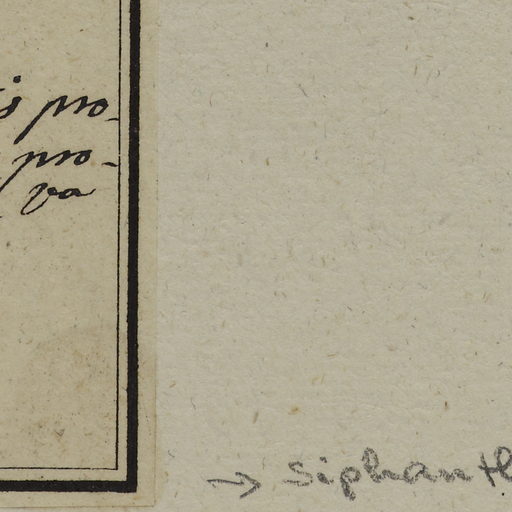 is pro-
pro-
va
→ Siphanth